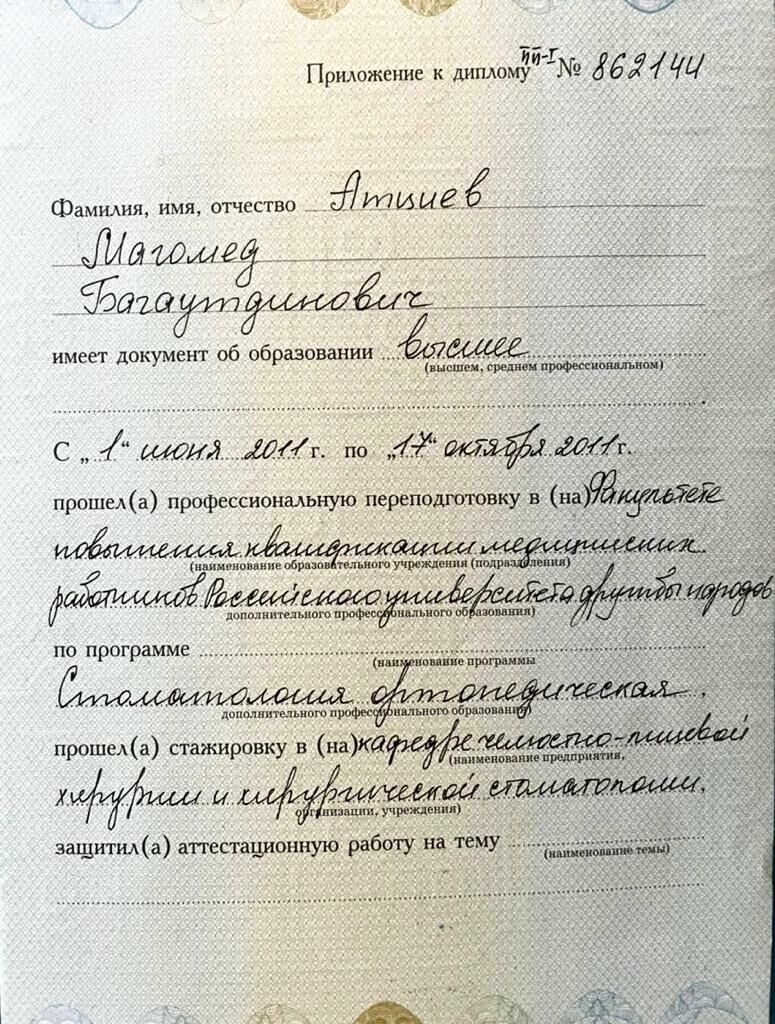 Приложение к диплому ПП-I № 862144
Фамилия, имя, отчество Атциев
Магомед
Багаутдинович
имеет документ об образовании высшее
(высшем, среднем профессиональном)
С „1“ июня 2011 г. по „17“ октября 2011 г.
прошел(а) профессиональную переподготовку в (на) Факультете
повышения квалификации медицинских
(наименование образовательного учреждения (подразделения)
работников Российского университета дружбы народов
дополнительного профессионального образования)
по программе
(наименование программы
Стоматология ортопедическая,
дополнительного профессионального образования)
прошел(а) стажировку в (на) кафедре челюстно-лицевой
(наименование предприятия,
хирургии и хирургической стоматологии,
организации, учреждения)
защитил(а) аттестационную работу на тему
(наименование темы)